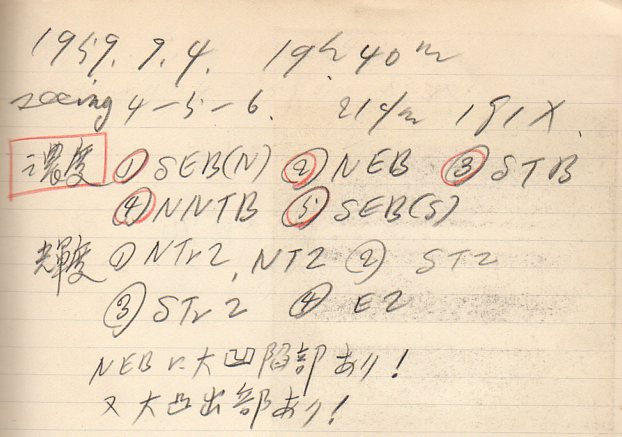 1959. 9. 4. 19h 40m
seeing 4-5-6. 21cm 191X.
濃度 ① SEB(N) ② NEB ③ STB
④ NNTB ⑤ SEB(S)
輝度 ① NTrZ, NTZ ② STZ
③ STrZ ④ EZ
NEBに大凹陥部あり!
又大凸出部あり!